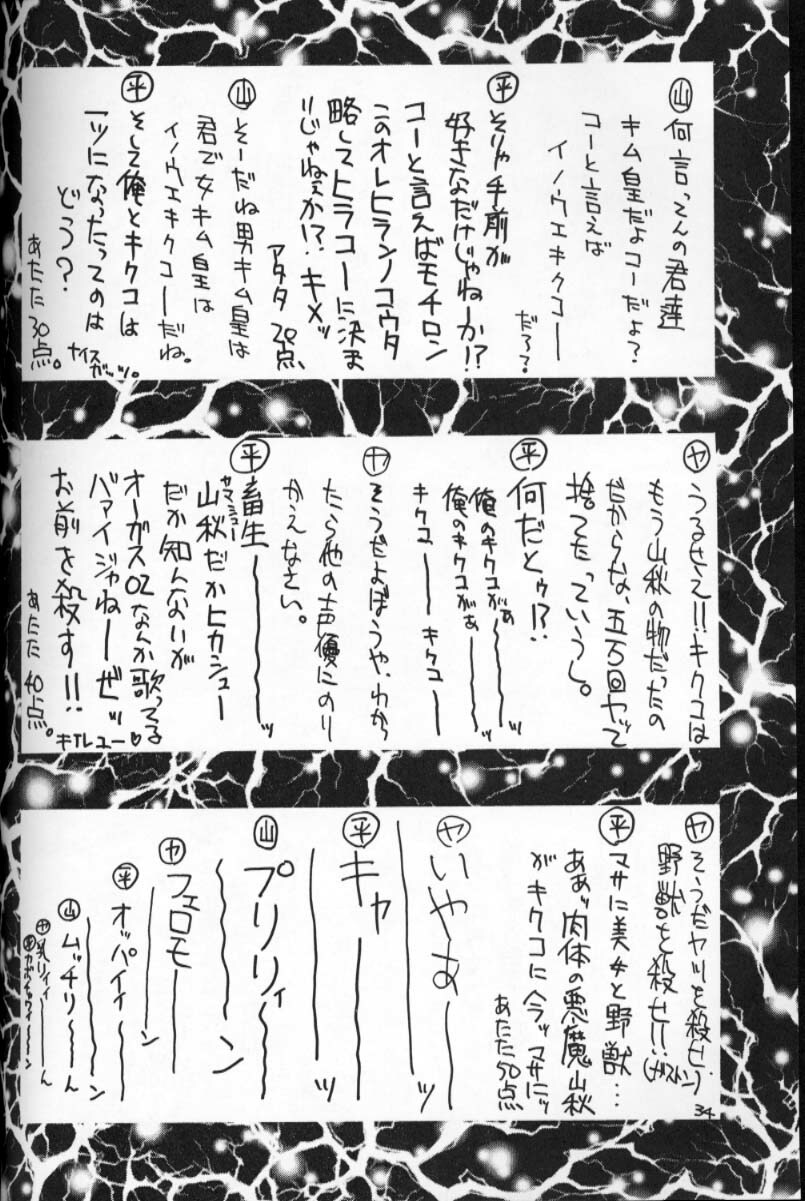 山 何言ってんの君達
キム皇だよコーだよ?
コーと言えば
イノウエキクコー
だろ?
平 そりゃ手前が
好きなだけじゃねーか!?
コーと言えばモチロン
このオレヒラノコウタ
略してヒラコーに決ま
りじゃねぇか!?キメッ
アタタ 20点、
山 そーだね男キム皇は
君で女キム皇は
イノウエキクコーだね。
平 そして俺とキクコは
一ツになったってのは
どう?
ナイスガッツ。
あたた 30点。
ヤ うるせえ!!キクコは
もう山秋の物だったの
だからな、五万回ヤッて
捨てたっていうし。
平 何だとゥ!?
俺のキクコがぁ〜〜〜ッ
俺のキクコがぁ〜〜〜ッ
キクコ――キクコ――
ヤ そうだよぼうや、わから
たら他の声優にのり
かえなさい。
平 畜生〜〜〜〜ッ
山秋だかヒカシュー
ヤマシュー
だか知んないが
オーガス02なんか歌ってる
バァイジャねーぜッ
お前を殺す!!
キTレユー♡
あたた 40点。
ヤ そうだヤツを殺せ、
野獣を殺せ!!
(ガストン)
平 マサに美女と野獣…
ああッ肉体の悪魔山秋
がキクコにヘラッマサにッ
あたた50点
ヤ いやあ――――ッ
平 キャ――〜〜〜ッ
山 プリリィ〜〜〜ン
ヤ フェロモ――――ン
平 オッパイィ〜〜〜ン
山 ムッチリ〜〜ん
ヤ 乳リィィ――ん
34